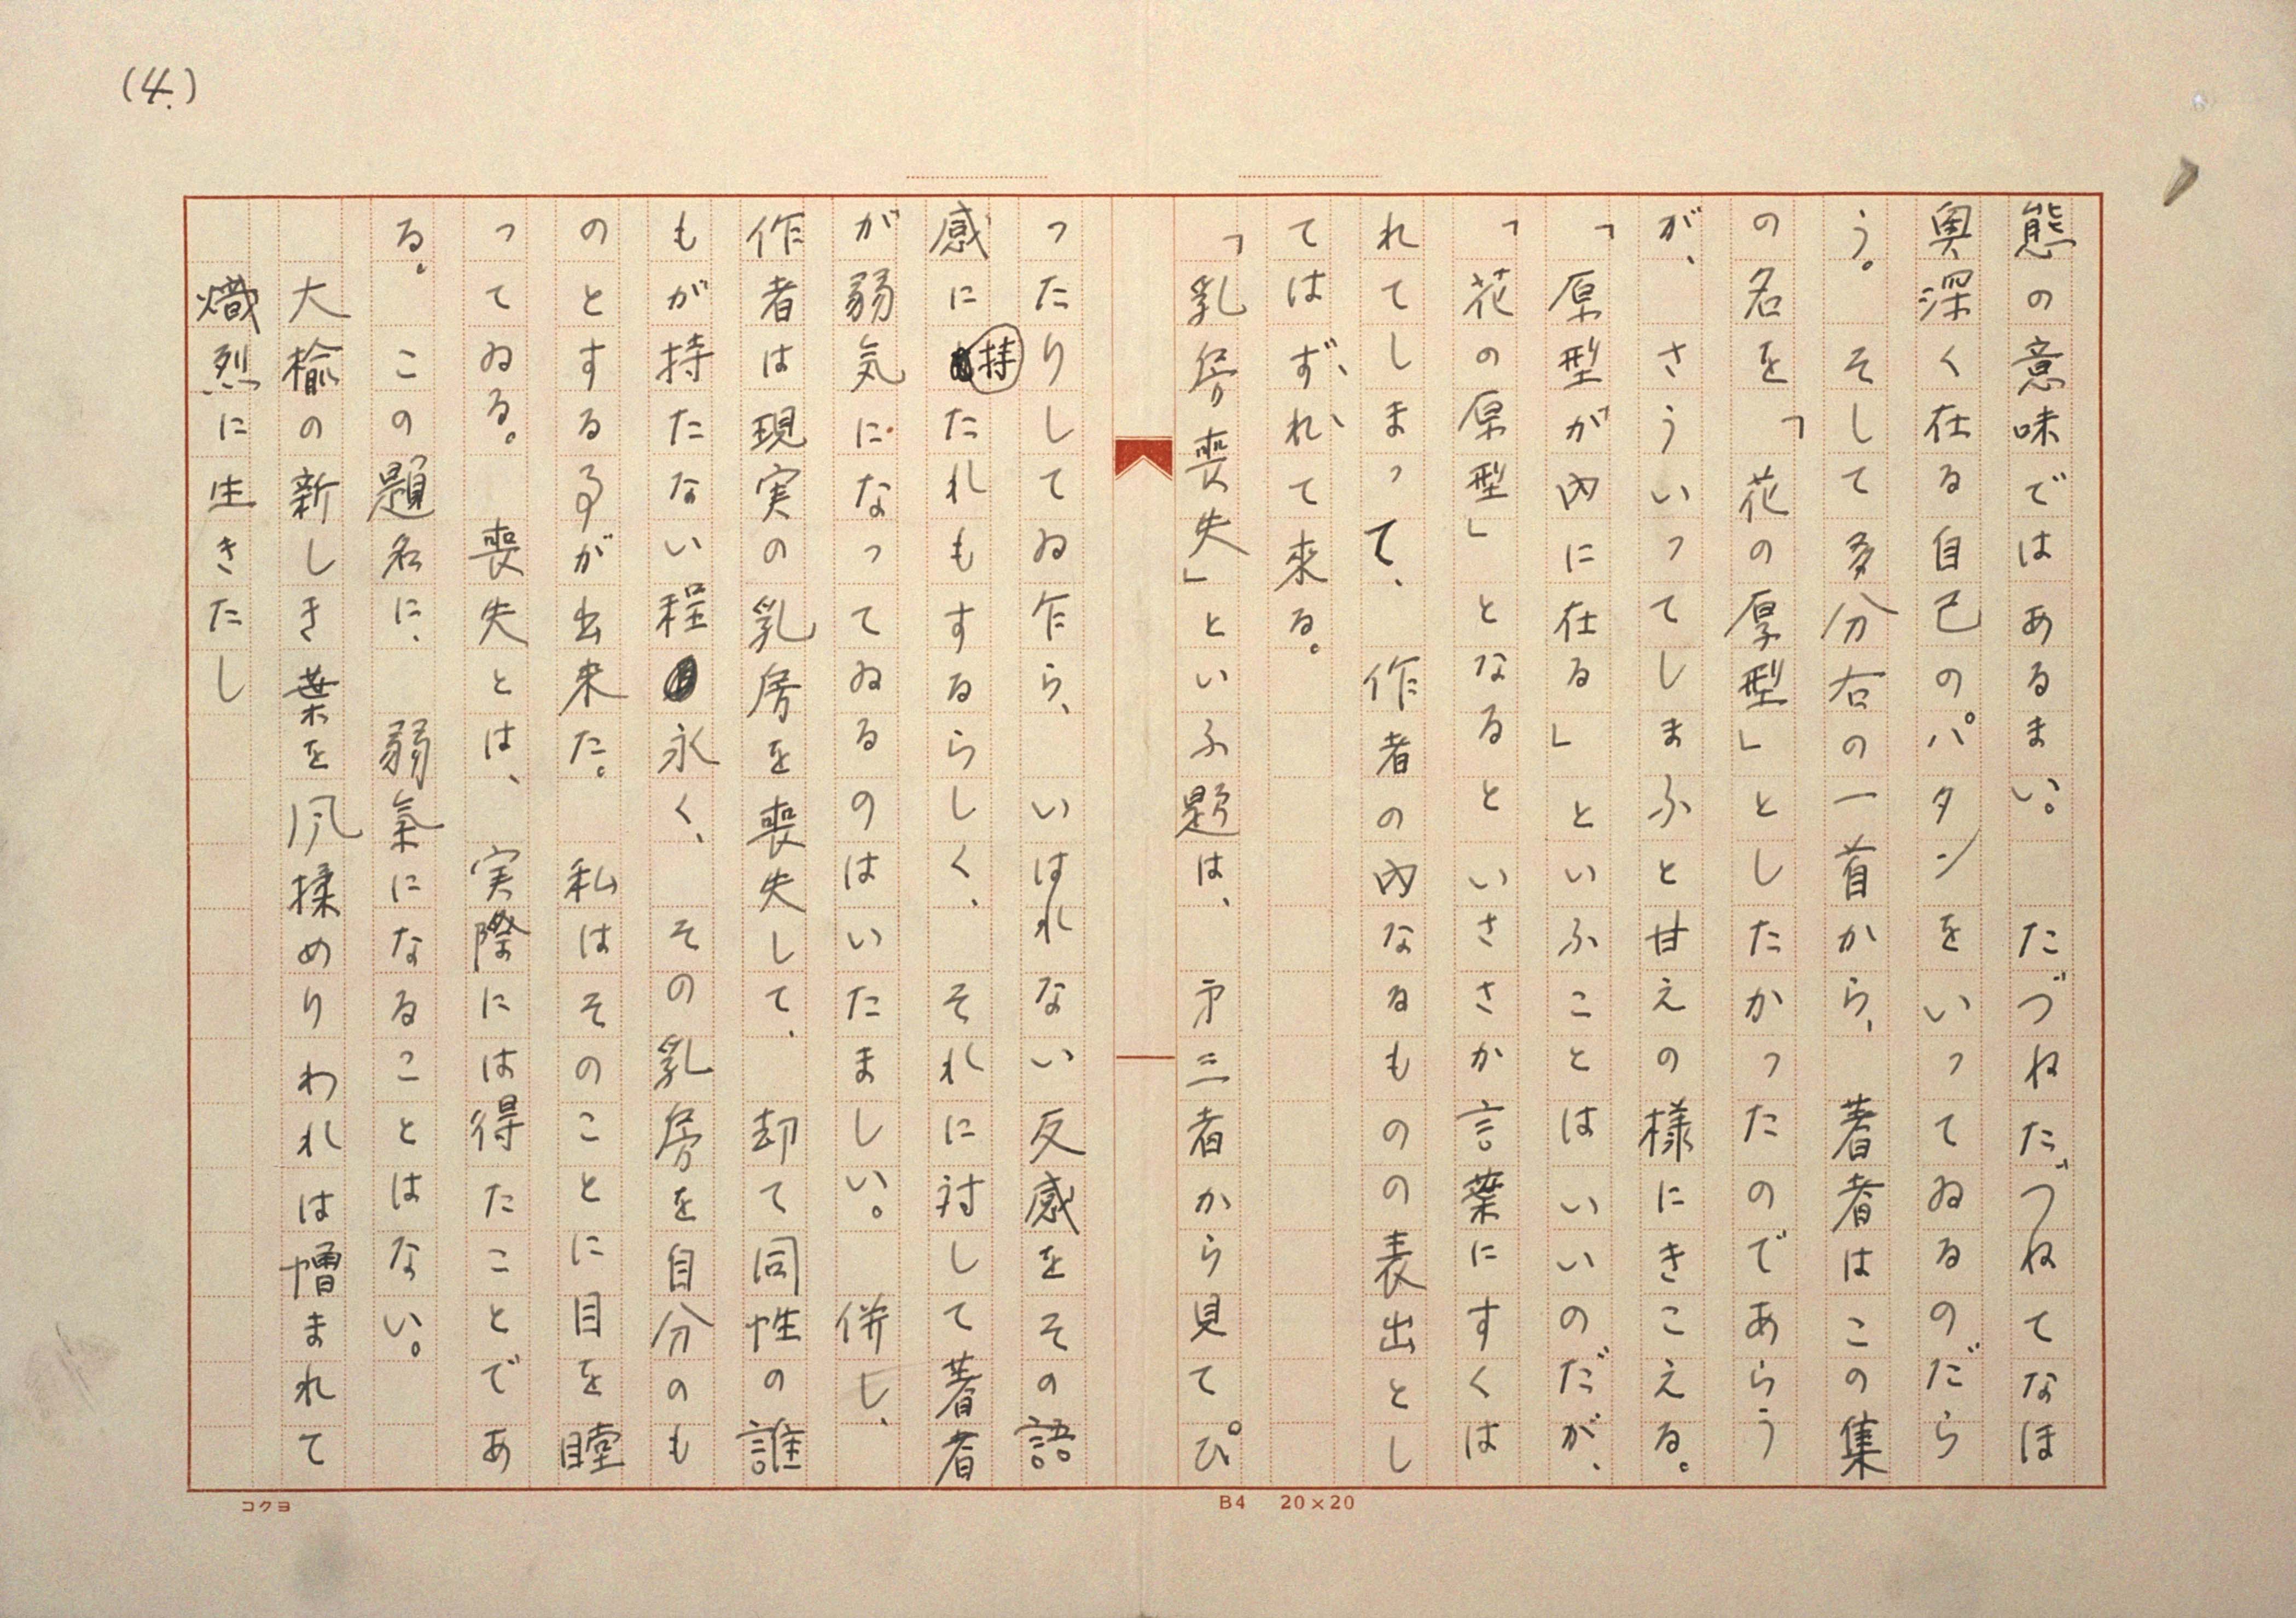 (4.)
態の意味ではあるまい。　たづねたづねてなほ
奥深く在る自己のパタンをいってゐるのだら
う。そして多分右の一首から、著者はこの集
の名を「花の厚型」としたかったのであらう
が、さういってしまふと甘えの様にきこえる。
「原型が内に在る」といふことはいいのだが、
「花の原型」となるといささか言葉にすくは
れてしまって、作者の内なるものの表出とし
てはずれて来る。
「乳房喪失」といふ題は、才三者から見て。ぴ
ったりしてゐ乍ら、いはれない反感をその語
感に持たれもするらしく、それに対して著者
が弱気になってゐるのはいたましい。併し、
作者は現実の乳房を喪失して、却て同性の誰
もが持たない程永く、その乳房を自分のも
のとする事が出来た。私はそのことに目を瞠
ってゐる。喪失とは、実際には得たことであ
る。この題名に、弱氣になることはない。
大楡の新しき葉を凬揉めりわれは憎まれて
熾烈に生きたし
コクヨ
B4　20×20